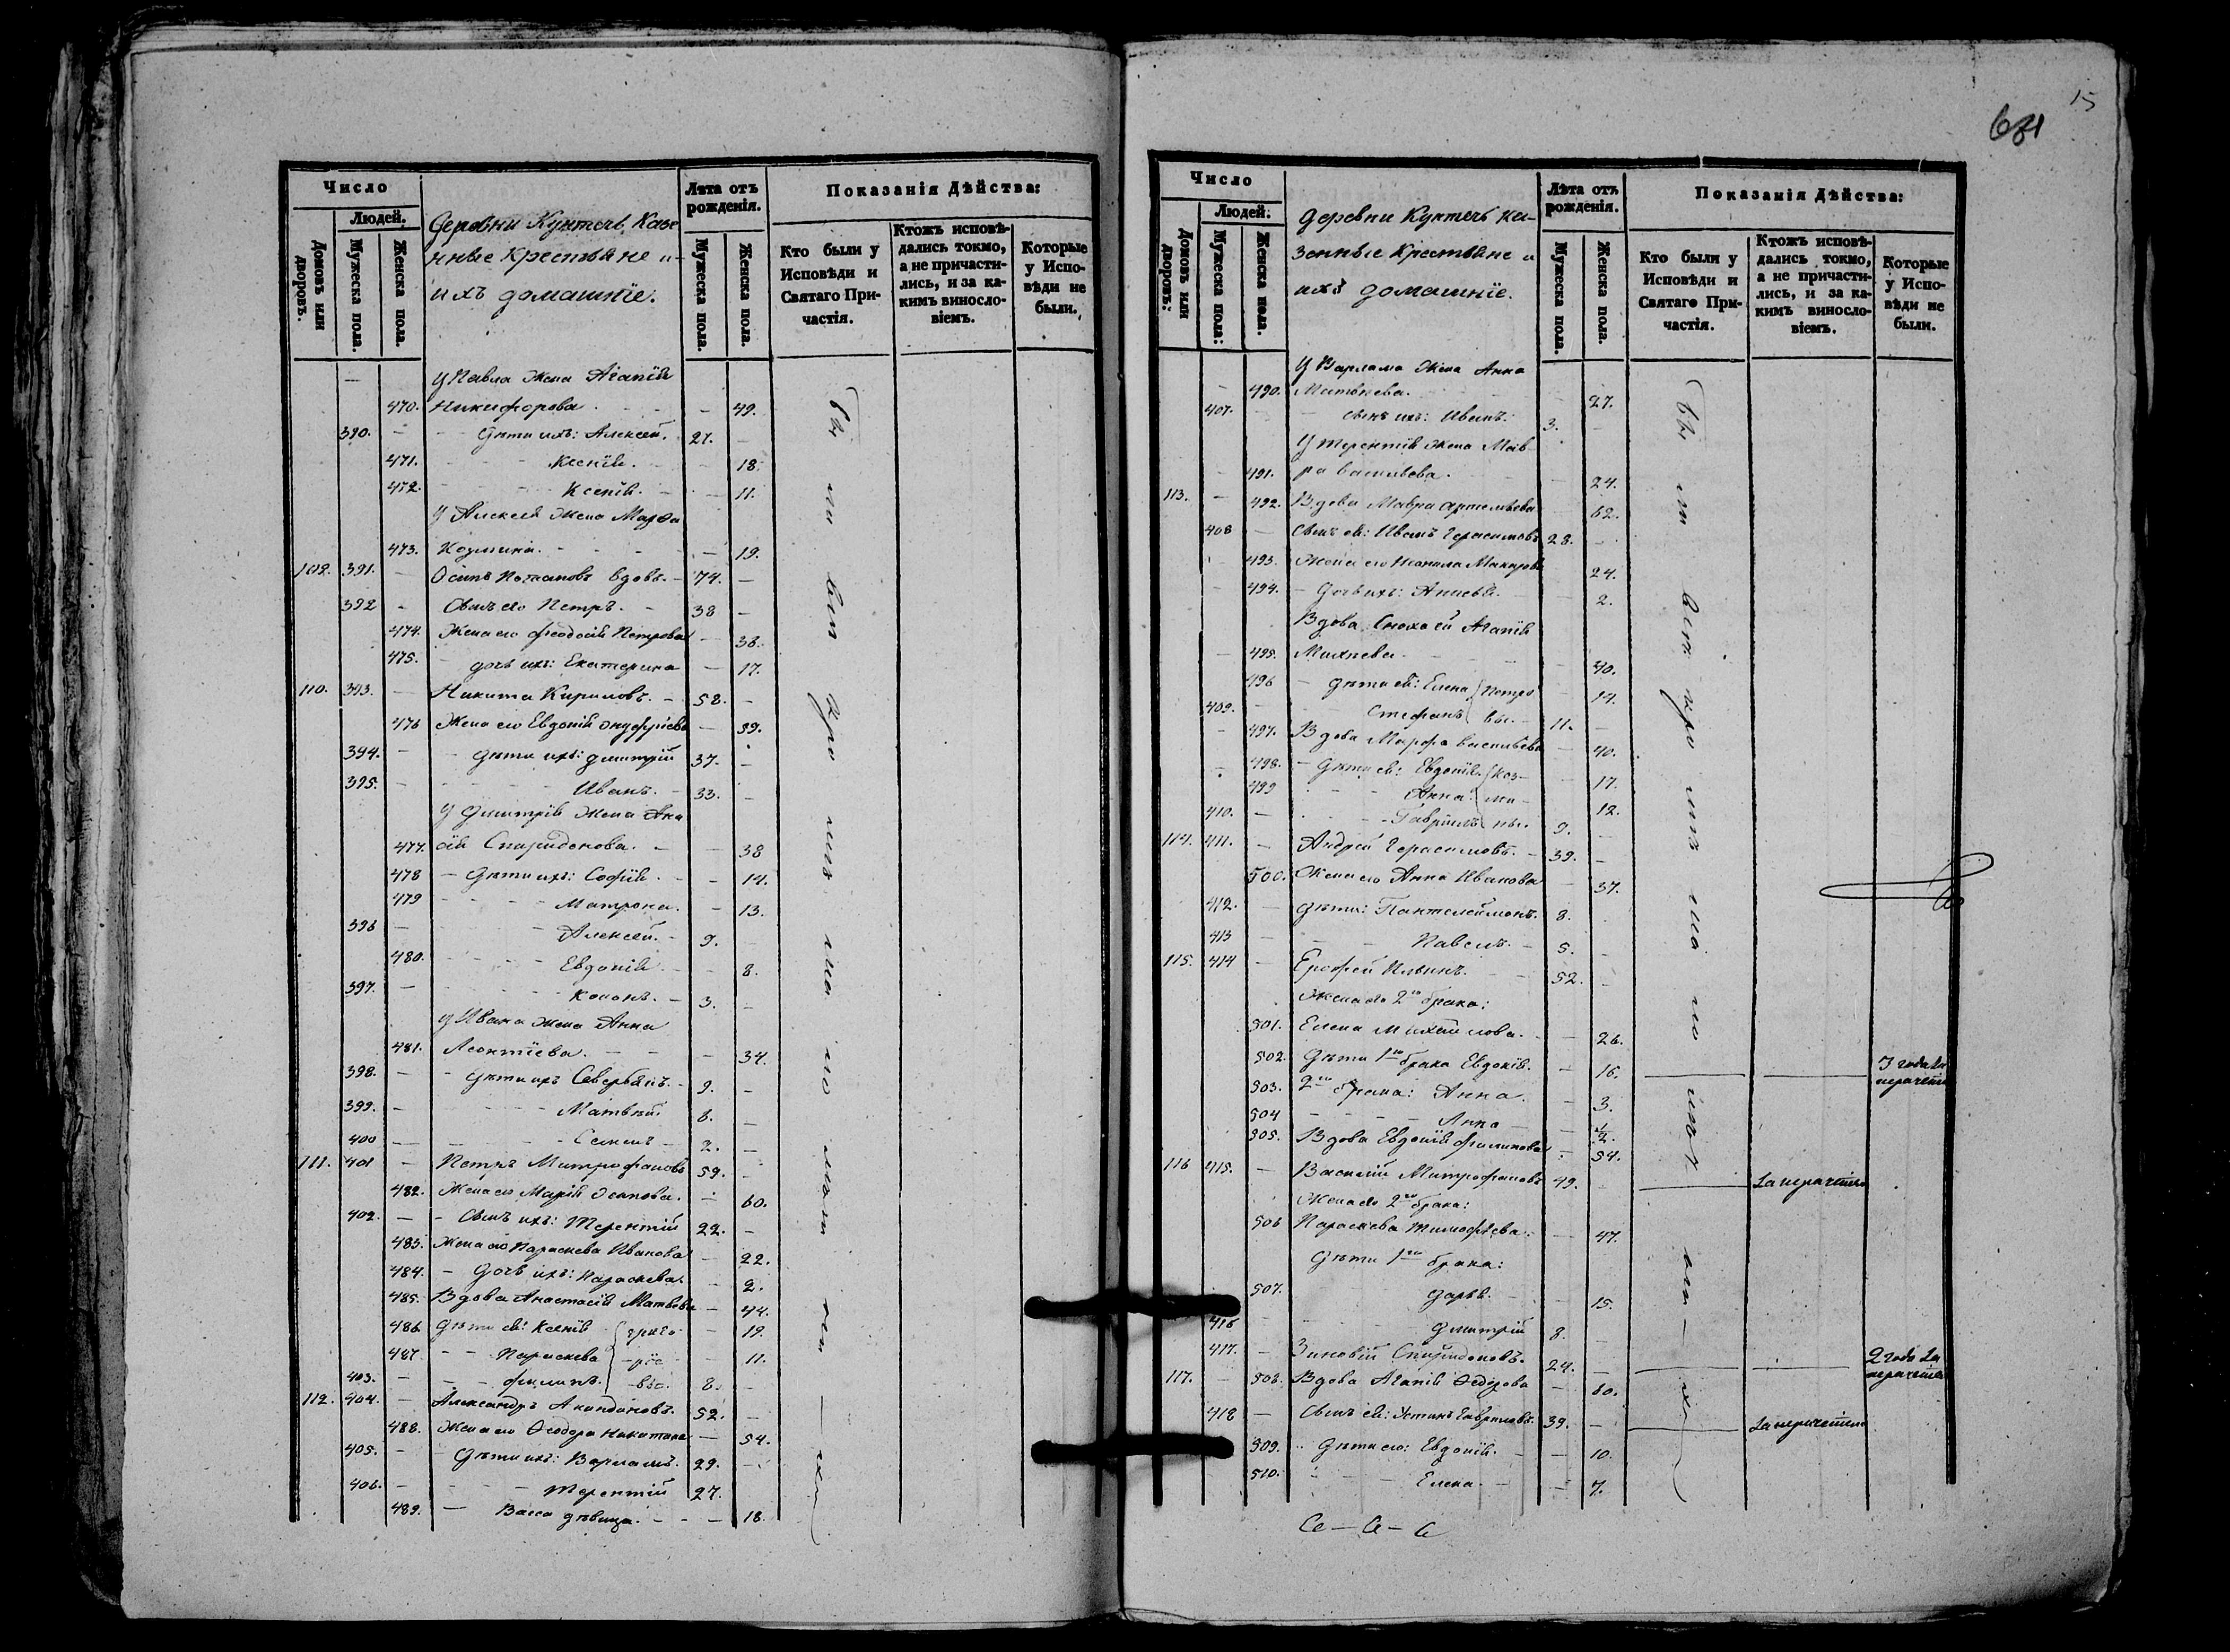 Число
Людей.
Домовъ или дворовъ.
Мужеска пола.
Женска пола.
Деревни Куктеч, Казе
нные Крестьяне и
ихъ домашніе.
Лѣта отъ рожденія.
Мужеска пола.
Женска пола.
Показанія Дѣйства:
Кто были у Исповѣди и Святаго Причастія.
Ктожъ исповѣдались токмо, а не причастились, и за какимъ винословіемъ.
Которые у Исповѣди не были.
У Павла жена Агапія
470. Никифорова. - 49.
390. - Дѣти ихъ: Алексей. 21. -
471. - Ксенія. - 18.
472. - Ксенія. - 11.
У Алексея жена Марфа
473. Козмина. - 19.
109. 391. - Осипъ Потаповъ вдовъ. 74. -
392 - Сынъ его Петръ. - 38 -
474. Жена его Феодосія Петрова - 38.
475. - дочь ихъ: Екатерина - 17.
110. 393. - Никита Кириловъ. - 58. -
476 Жена его Евдокія Онуфріева - 59.
394. - - дѣти ихъ: Дмитрій 37. -
395. - Иванъ. - 33. -
У Дмитрія жена Ана
477. сія Спиридонова. - 38
478 - Дѣти ихъ: Софія. - 14.
479 - Матрона. - 13.
396 - Алексей. - 9. -
480. - Евдокія. - 8.
397. - Кононъ. - 3. -
У Ивана жена Анна
481. Леонтіева. - 34.
398. - Дѣти ихъ Северьянъ. - 9. -
399. - Матвѣй. 8. -
400 - Семенъ - 2. -
111. 401 - Петръ Митрофановъ 59. -
482. Жена его Марія Осипова. - 60.
402. - - Сынъ ихъ: Терентій 22. -
483. Жена его Параскева Иванова - 22.
484. - Дочь ихъ: Параскева. - 2.
485. Вдова Анастасія Матвѣева - 44.
486. Дѣти ея: Ксенія григо- - 19.
487 - - Параскева -ріе- - 11.
403. - Филипъ. -вы. 8. -
112. 404. - Александръ Акиндиновъ. 52. -
488. Жена его Феодора Никитина - 54.
405. - Дѣти ихъ: Варламъ. 29. -
406. - Терентій 27.
489. - Васса дѣвица. - 18.
15
Число
Людей.
Домовъ или дворовъ:
Мужеска пола:
Женска пола.
Деревни Куктечь ка-
зенные крестьяне и
ихъ домашніе.
Лѣта отъ рожденія.
Мужеска пола.
Женска пола.
Показанія Дѣйства:
Кто были у Исповѣди и Святаго Причастія.
Ктожъ исповѣдались токмо, а не причастились, и за какимъ винословіемъ.
Которые у Исповѣди не были.
У Варлама жена Анна
490. Матвѣева. - 27.
407. - - сынъ ихъ: Иванъ. 3. -
У Терентія жена Мав-
491. ра Васильева. - 24.
113. - 492. Вдова Мавра Артемьева 62.
408 - Сынъ ея: Иванъ Герасимовъ 28. -
493. Жена его Неонила Макарова 24.
494. - Дочь ихъ: Анисья. - 2.
Вдова Сноха ей Агапія
495. Михеева. - 40.
496 - Дѣти ея: Елена Петро 14.
409. - Стефанъ вы. - 11. -
497. Вдова Марфа Васильева - 40.
498. - Дѣти ея: Евдокія. Коз- - 17.
499 - Анна ми- 12.
410. - Гавріилъ ны. 9. -
114. 411. - Андрей Герасимовъ. - 39. -
500. Жена его Анна Иванова - 37.
412. - Дѣти: Пантелеймонъ. 8.
413 - Павелъ. - 5. -
115. 414 - Ерофей Ильинъ. 52. -
Жена его 2го брака:
501. Елена Михайлова. - 26.
502. Дѣти 1го брака Евдокія. - 16.
3 года за нераченіе
503. 2го брака: Анна. - 3.
504 - Анна - 1/2.
505. Вдова Евдокія Филипова - 54.
116 415. - Василій Митрофановъ 49. -
За нераченіе
Жена его 2го брака:
506 Параскева Тимофѣева. - 47.
Дѣти 1го брака:
507. Дарья. - 15.
416 - Дмитрій 8. -
417. - Зиновій Спиридоновъ. 24. -
2 года за нераченіе
117. - 508. Вдова Агапія Федорова - 60.
418 - Сынъ ея: Устинъ Гавриловъ. 39. -
За нераченіе
509. - Дѣти его: Евдокія. - 10.
510. - Елена. - 7.